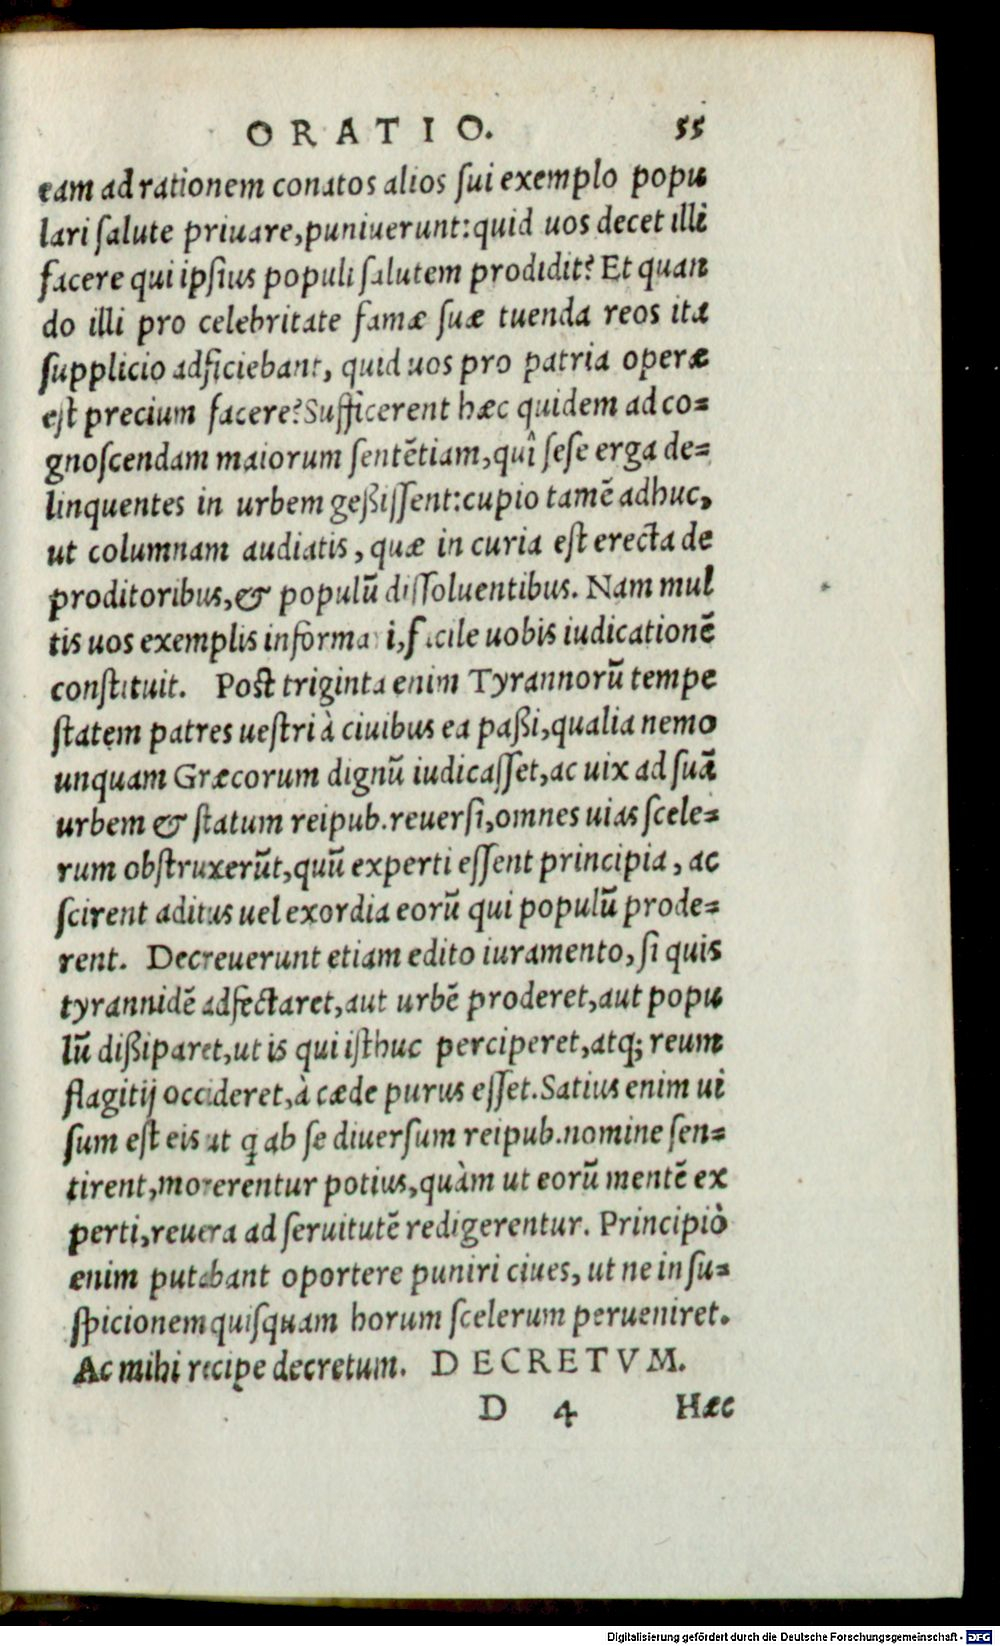 ORATIO. 55
eam ad rationem conatos alios ſui exemplo popu
lari ſalute priuare,puniuerunt:quid uos decet illi
facere qui ipſius populi ſalutem prodidit? Et quan
do illi pro celebritate famæ ſuæ tuenda reos ita
ſupplicio adficiebant, quid uos pro patria operæ
eſt precium facere?Sufficerent hæc quidem ad co=
gnoſcendam maiorum ſentētiam,quî ſeſe erga de=
linquentes in urbem geßiſſent:cupio tamē adhuc,
ut columnam audiatis, quæ in curia eſt erecta de
proditoribus,& populū diſſoluentibus. Nam mul
tis uos exemplis informari,facile uobis iudicationē
conſtituit. Poſt triginta enim Tyrannorū tempe
ſtatem patres ueſtri à ciuibus ea paßi,qualia nemo
unquam Græcorum dignū iudicaſſet,ac uix ad ſuā
urbem & ſtatum reipub.reuerſi,omnes uias ſcele=
rum obſtruxerūt,quū experti eſſent principia, ac
ſcirent aditus uel exordia eorū qui populū prode=
rent. Decreuerunt etiam edito iuramento, ſi quis
tyrannidē adfectaret,aut urbē proderet,aut popu
lū dißiparet,ut is qui iſthuc perciperet,atq; reum
flagitij occideret,à cæde purus eſſet.Satius enim ui
ſum eſt eis ut q ab ſe diuerſum reipub.nomine ſen=
tirent,morerentur potius,quàm ut eorū mentē ex
perti,reuera ad ſeruitutē redigerentur. Principiò
enim putabant oportere puniri ciues, ut ne in ſu=
ſpicionem quiſquam horum ſcelerum perueniret.
Ac mihi recipe decretum. DECRETVM.
D 4 Hæc
Digitalisierung gefördert durch die Deutsche Forschungsgemeinschaft - DFG